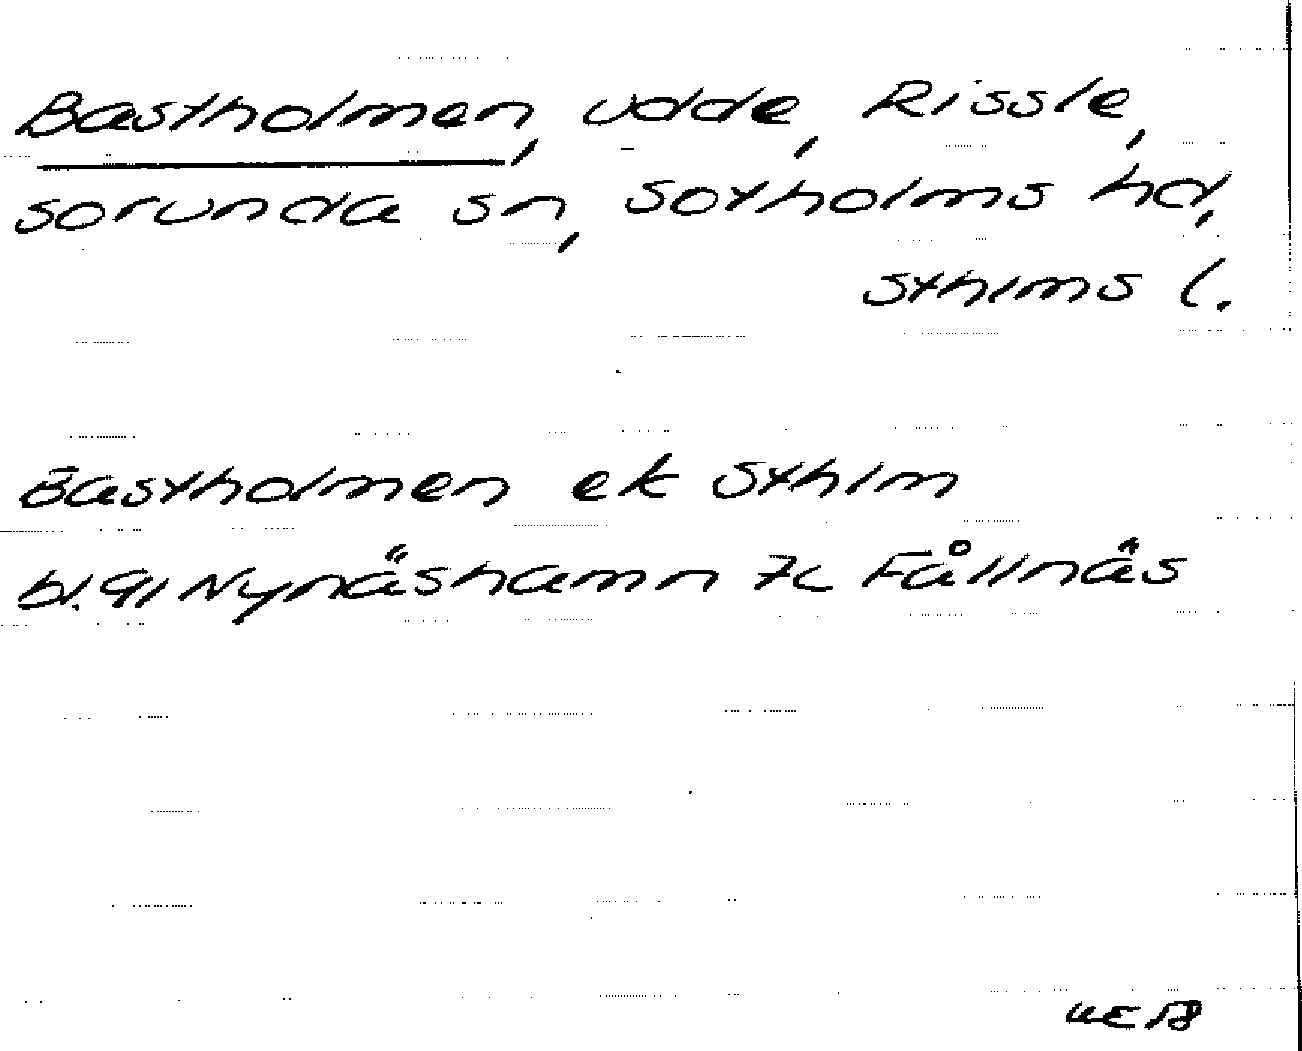 Bastholmen, udde, Rissle,
Sorunda sn, Sotholms hd,
Sthlms l.
Bastholmen ek Sthlm
bl. 91 Nynäshamn 7c Fållnäs